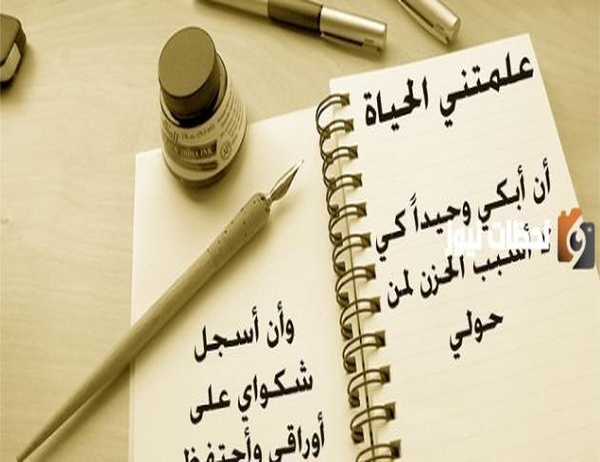 علمتني الحياة
أن أبكي وحيداً كي
لا أسبب الحزن لمن
حولي
وأن أسجل
شكواي على
أوراقي وأحتفظ
لحظات نيوز
INDIA INK